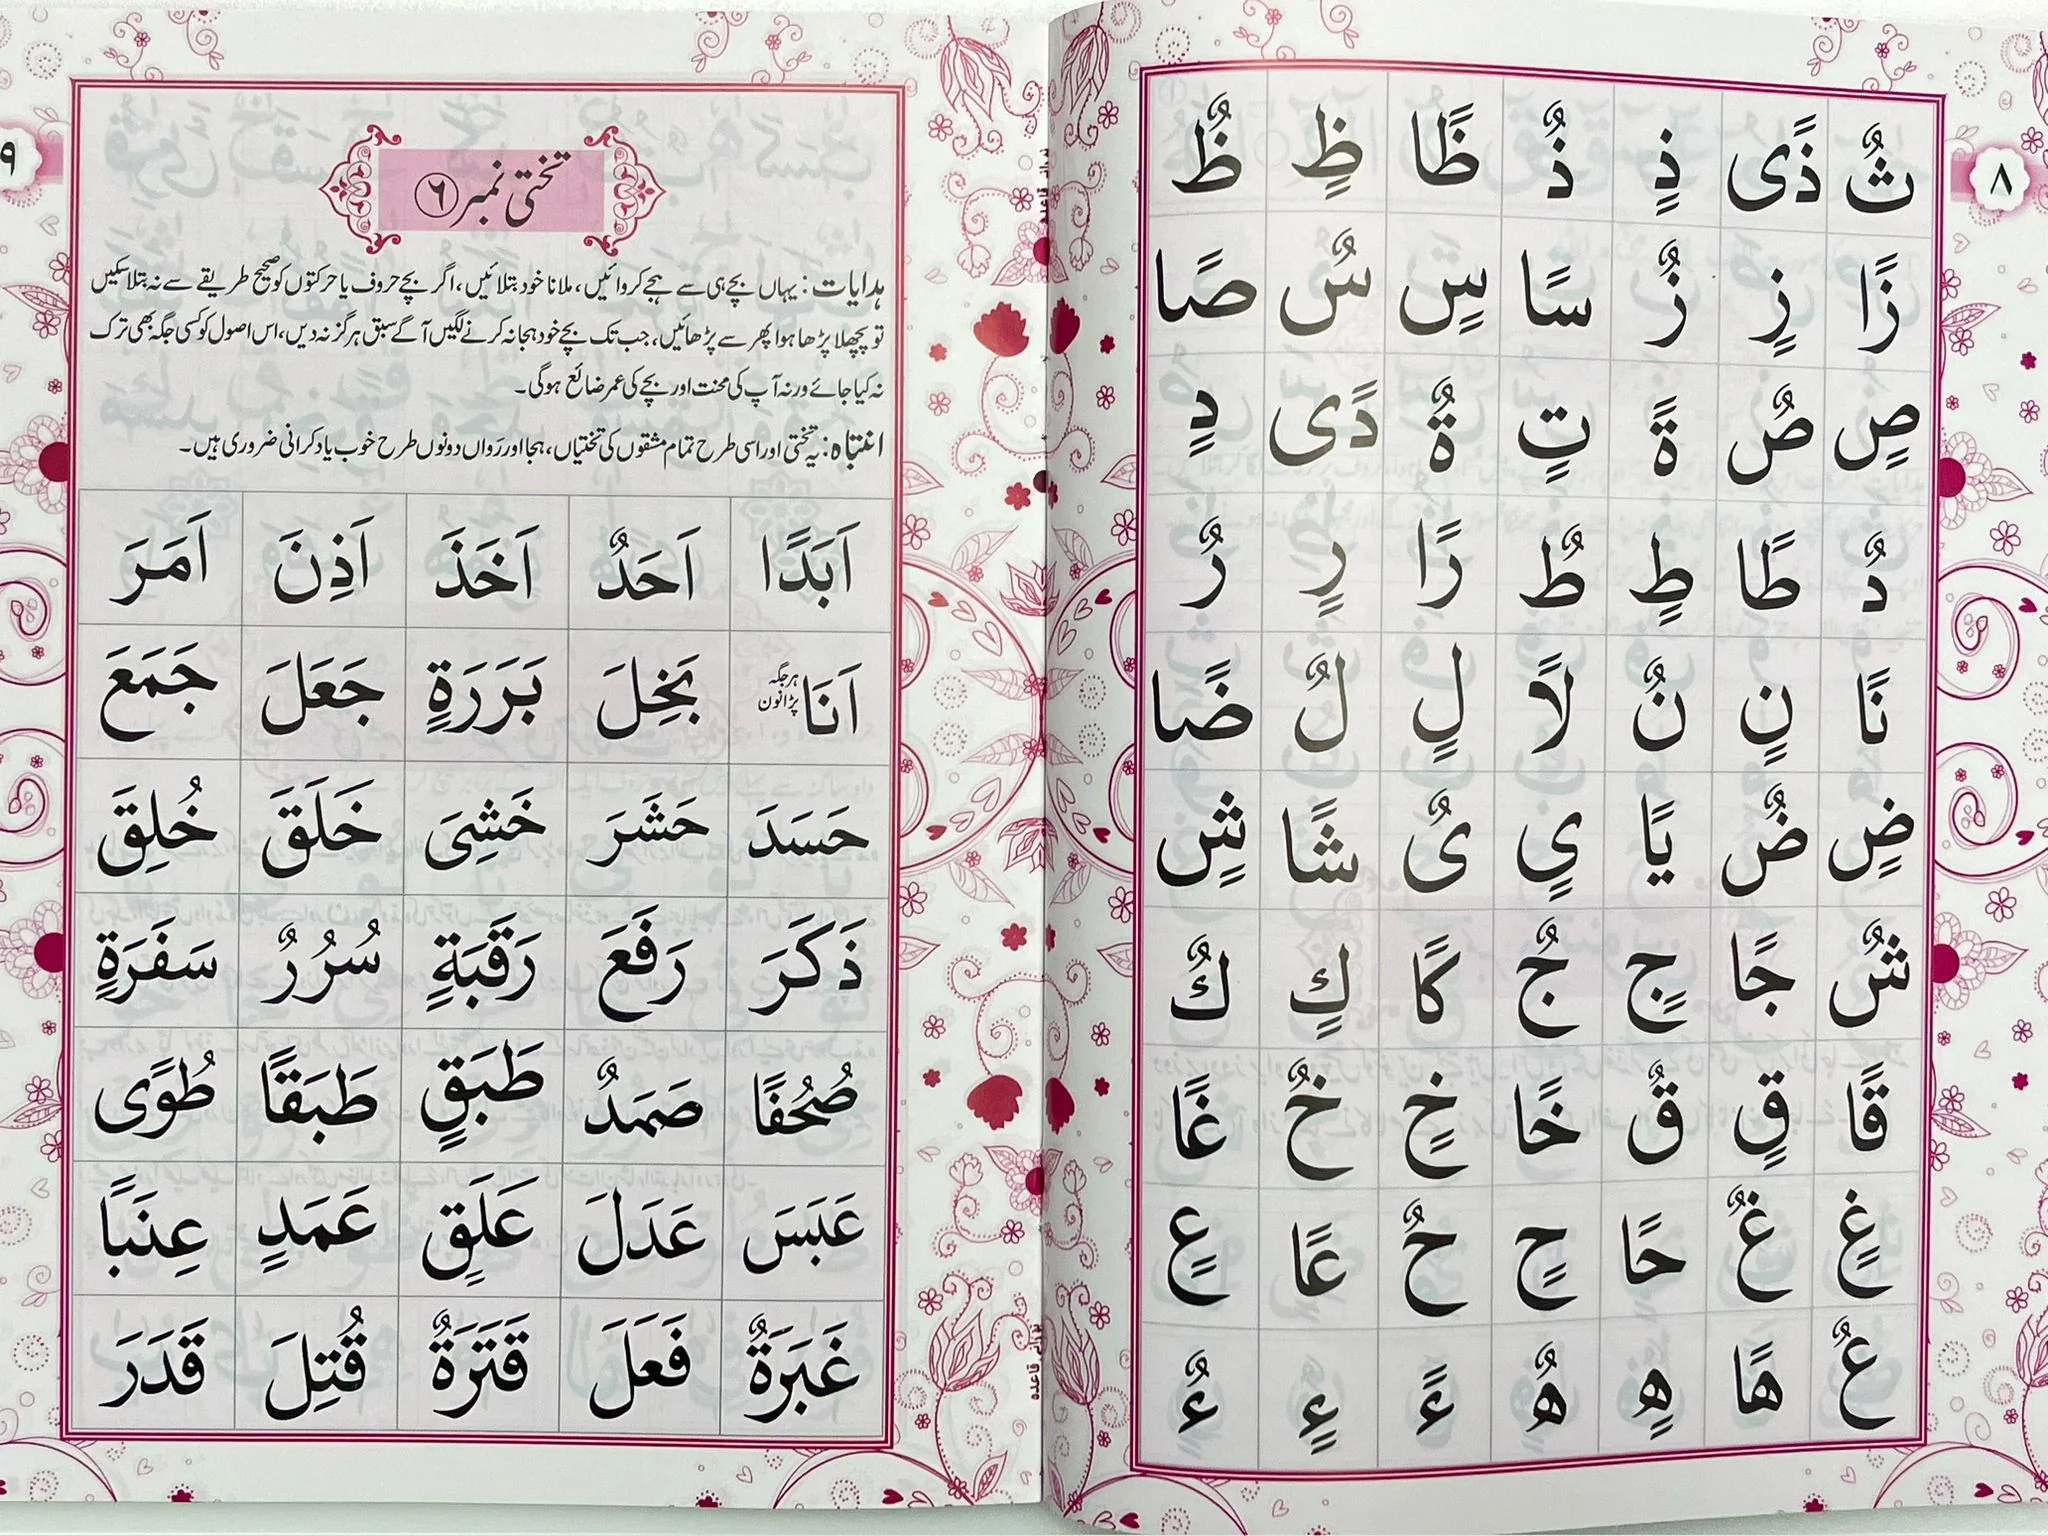 ٨
ثٌ ذًى ذٍ ذٌ ظًا ظٍ ظٌ
زًا زٍ زٌ سًا سٍ سٌ صًا
صٍ صٌ ةً تٍ ةٌ دًى دٍ
دٌ طًا طٍ طٌ رًا رٍ رٌ
نًا نٍ نٌ لًا لٍ لٌ ضًا
ضٍ ضٌ يًا ىٍ ىٌ شًا شٍ
شٌ جًا جٍ جٌ كًا كٍ كٌ
قًا قٍ قٌ خًا خٍ خٌ غًا
غٍ غٌ حًا حٍ حٌ عًا عٍ
عٌ هًا هٍ هٌ ءً ءٍ ءٌ
٩
تختی نمبر ٦
ہدایات: یہاں بچے ہی سے ہجے کروائیں، ملانا خود بتلائیں، اگر بچے حروف یا حرکتوں کو صحیح طریقے سے نہ بتلا سکیں
تو پچھلا پڑھا ہوا پھر سے پڑھائیں، جب تک بچے خود ہجا نہ کرنے لگیں آگے سبق ہرگز نہ دیں، اس اصول کو کسی جگہ بھی ترک
نہ کیا جائے ورنہ آپ کی محنت اور بچے کی عمر ضائع ہوگی۔
انتباہ: یہ تختی اور اسی طرح تمام مشقوں کی تختیاں، ہجا اور رَواں دونوں طرح خوب یاد کرانی ضروری ہیں۔
اَبَدًا اَحَدٌ اَخَذَ اَذِنَ اَمَرَ
اَنَا ہر جگہ پڑا نون بَخِلَ بَرَرَةٍ جَعَلَ جَمَعَ
حَسَدَ حَشَرَ خَشِىَ خَلَقَ خُلِقَ
ذَكَرَ رَفَعَ رَقَبَةٍ سُرُرٌ سَفَرَةٍ
صُحُفًا صَمَدٌ طَبَقٍ طَبَقًا طُوًى
عَبَسَ عَدَلَ عَلَقٍ عَمَدٍ عِنَبًا
غَبَرَةٌ فَعَلَ قَتَرَةٌ قُتِلَ قَدَرَ
نورانی قاعدہ